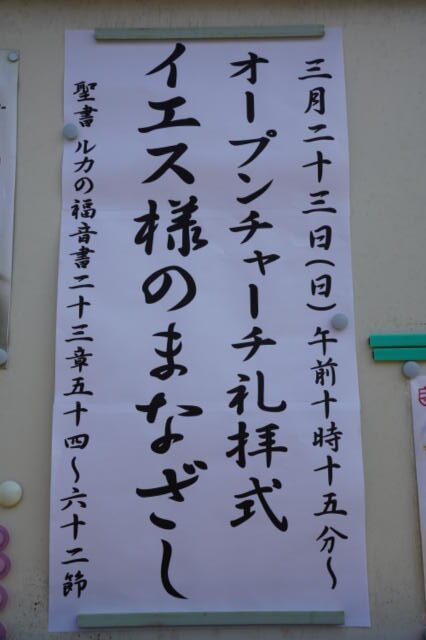 三月二十三日(日)午前十時十五分～
オープンチャーチ礼拝式
イエス様のまなざし
聖書 ルカの福音書二十三章五十四～六十二節